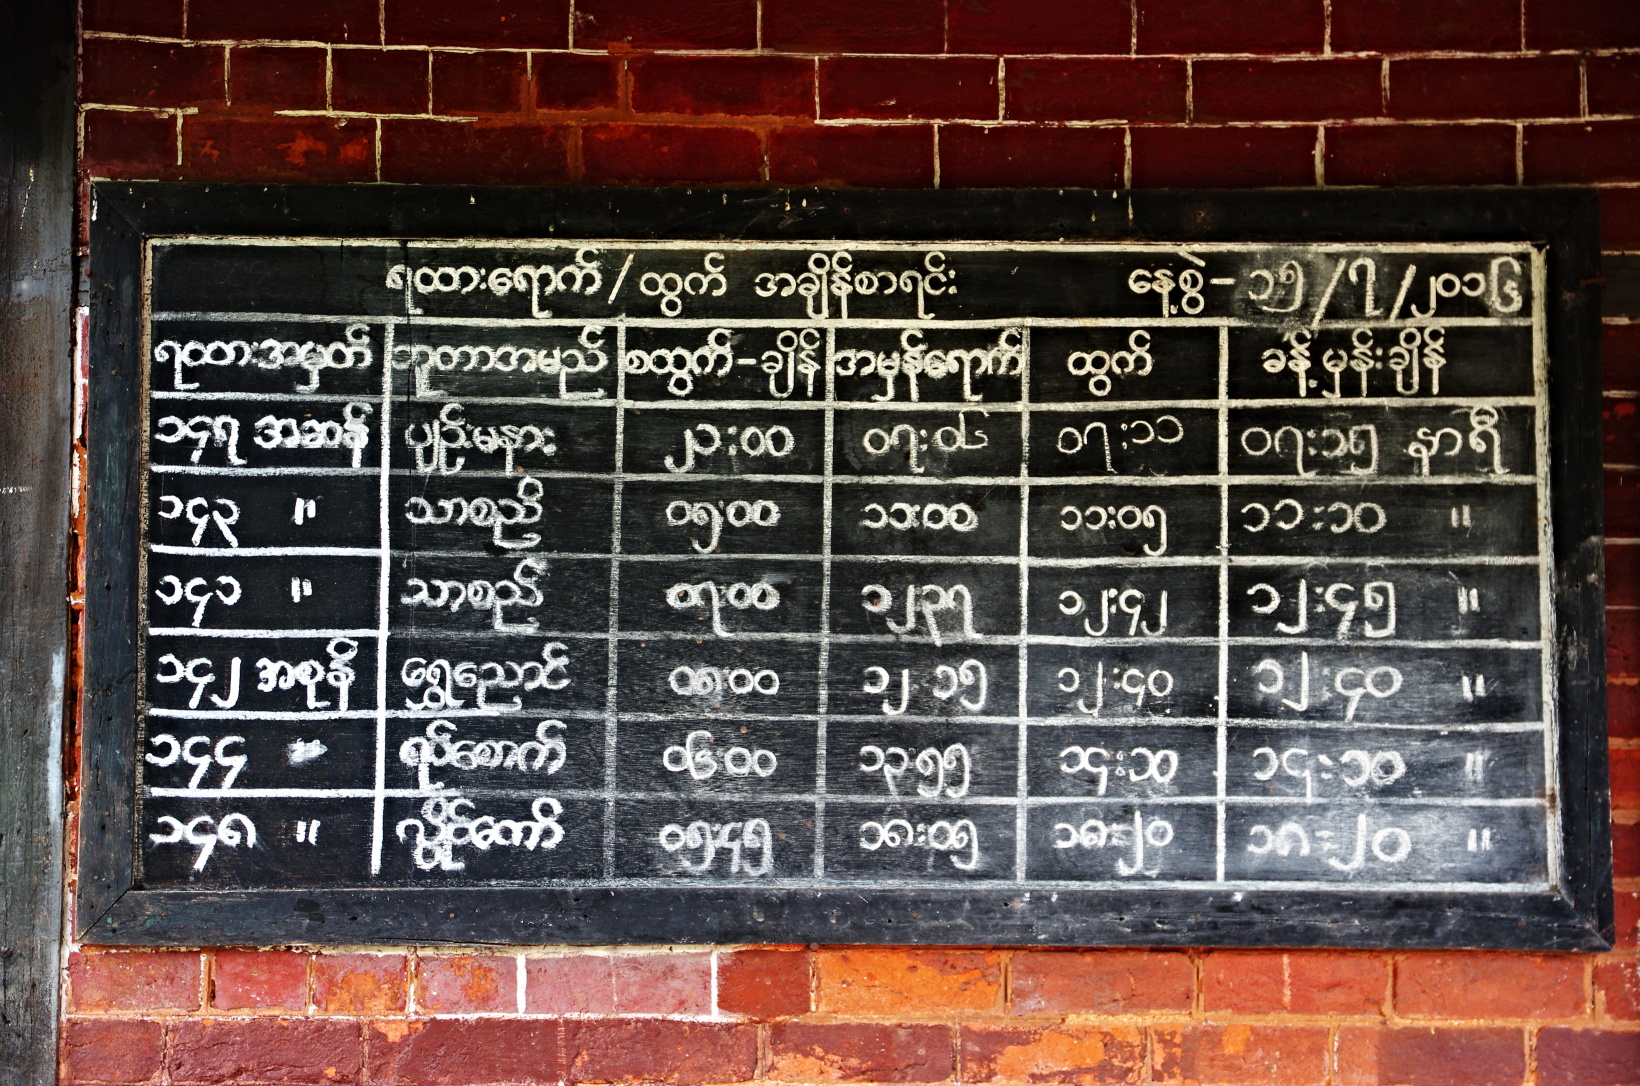 ရထားရောက်/ထွက် အချိန်စာရင်း နေ့စွဲ-၁၅/၇/၂၀၁၆
ရထားအမှတ် ဘူတာအမည် စထွက်-ချိန် အမှန်ရောက် ထွက် ခန့်မှန်းချိန်
၁၄၇ အဆန် ပျဉ်းမနား ၂၁:၀၀ ၀၇:၀၆ ၀၇:၁၁ ၀၇:၁၅ နာရီ
၁၄၃ " သာစည် ၀၅:၀၀ ၁၁:၀၀ ၁၁:၀၅ ၁၁:၁၀ "
၁၄၁ " သာစည် ၀၇:၀၀ ၁၂:၃၇ ၁၂:၄၂ ၁၂:၄၅ "
၁၄၂ အစုန် ရွှေညောင် ၀၈:၀၀ ၁၂:၁၅ ၁၂:၄၀ ၁၂:၄၀ "
၁၄၄ " ရပ်စောက် ၀၆:၀၀ ၁၃:၅၅ ၁၄:၁၀ ၁၄:၁၀ "
၁၄၈ " လွိုင်ကော် ၀၅:၄၅ ၁၈:၀၅ ၁၈:၂၀ ၁၈:၂၀ "